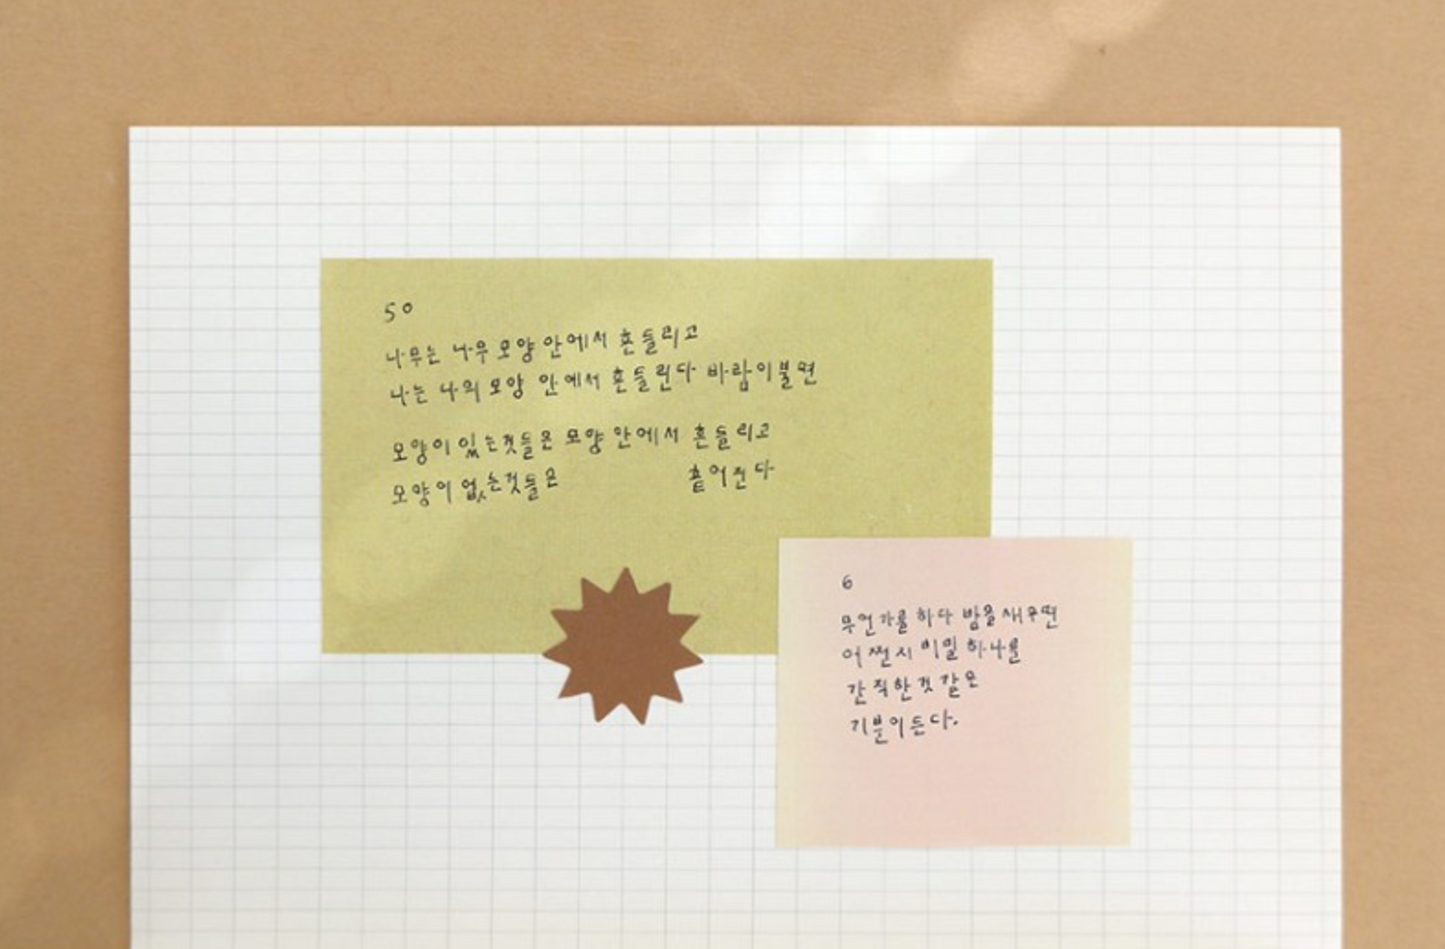 50
나무는 나무 모양 안에서 흔들리고
나는 나의 모양 안에서 흔들린다 바람이불면
모양이 있는것들은 모양 안에서 흔들리고
모양이 없는것들은 흩어진다
6
무언가를 하다 밤을새우면
어쩐지 비밀 하나를
간직한것 같은
기분이든다.